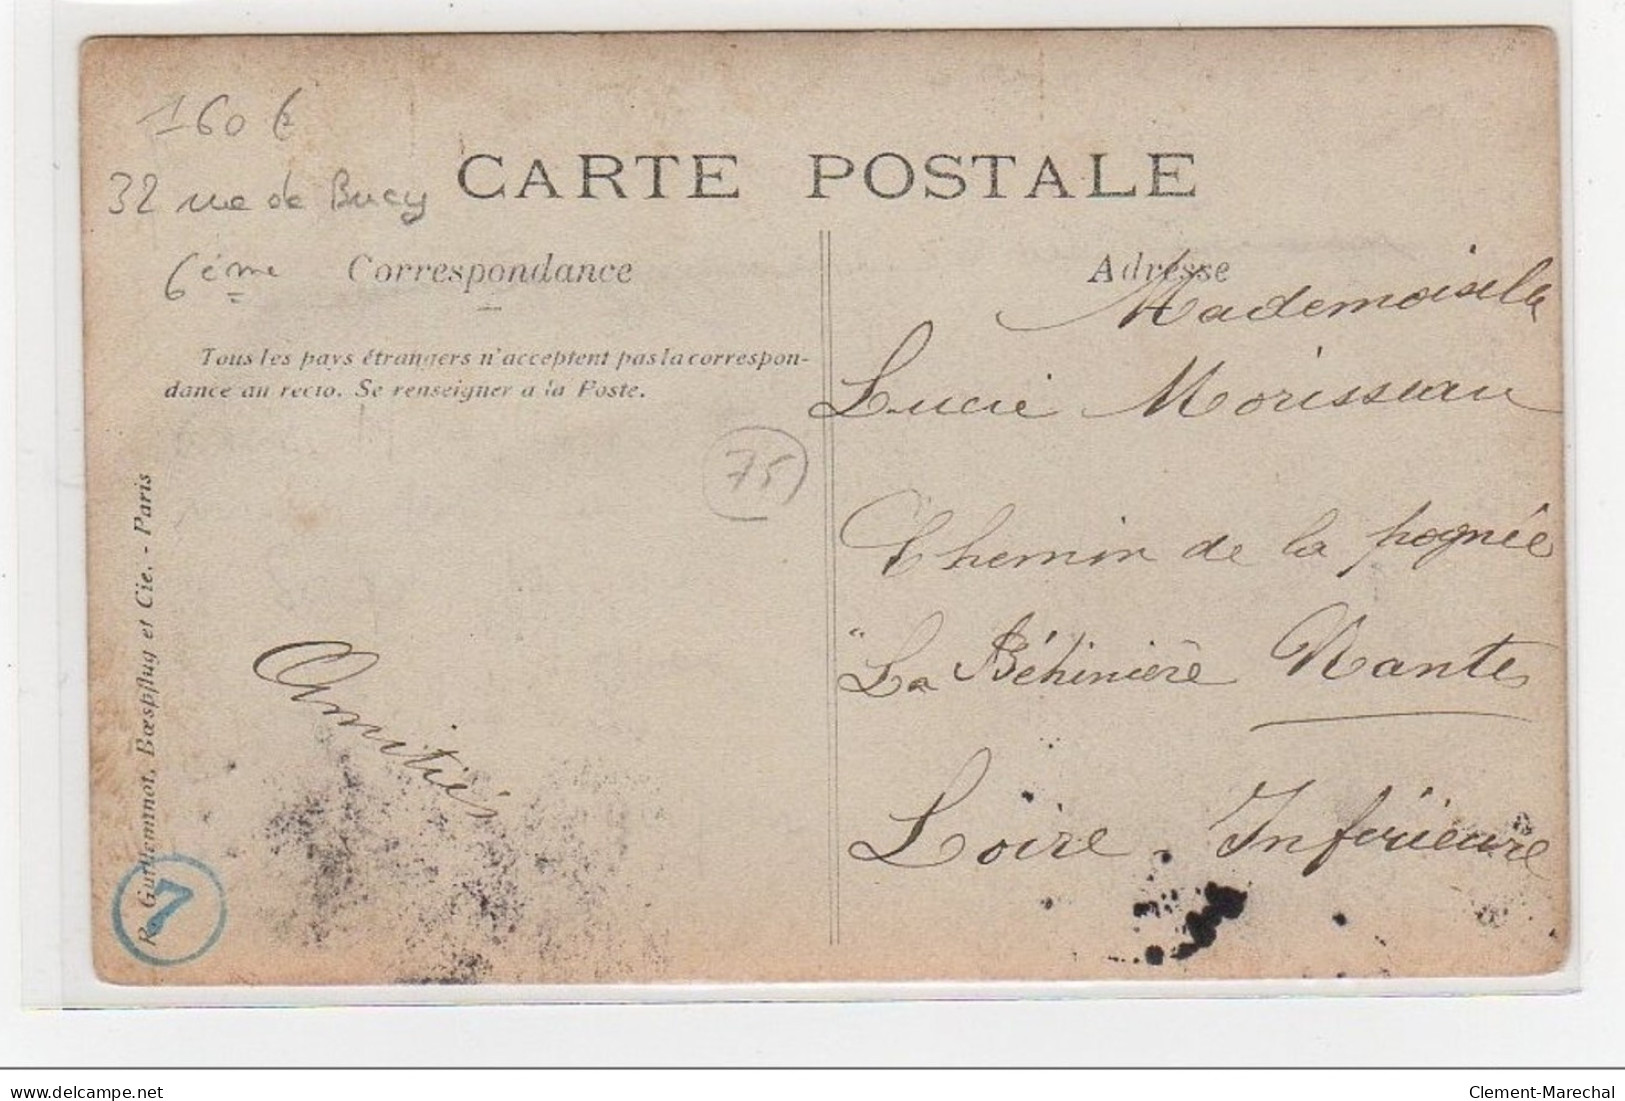 160 €
32 rue de Bucy
6ème
CARTE POSTALE
Correspondance
Adresse
Tous les pays étrangers n'acceptent pas la correspon-
dance au recto. Se renseigner a la Poste.
R. Guilleminot, Bœspflug et Cie. - Paris
75
7
Amitiés
Mademoiselle
Lucie Morisseau
Chemin de la pognée
"La Béhinière Nantes
Loire - Inférieure
delcampe.net
Clement-Marechal